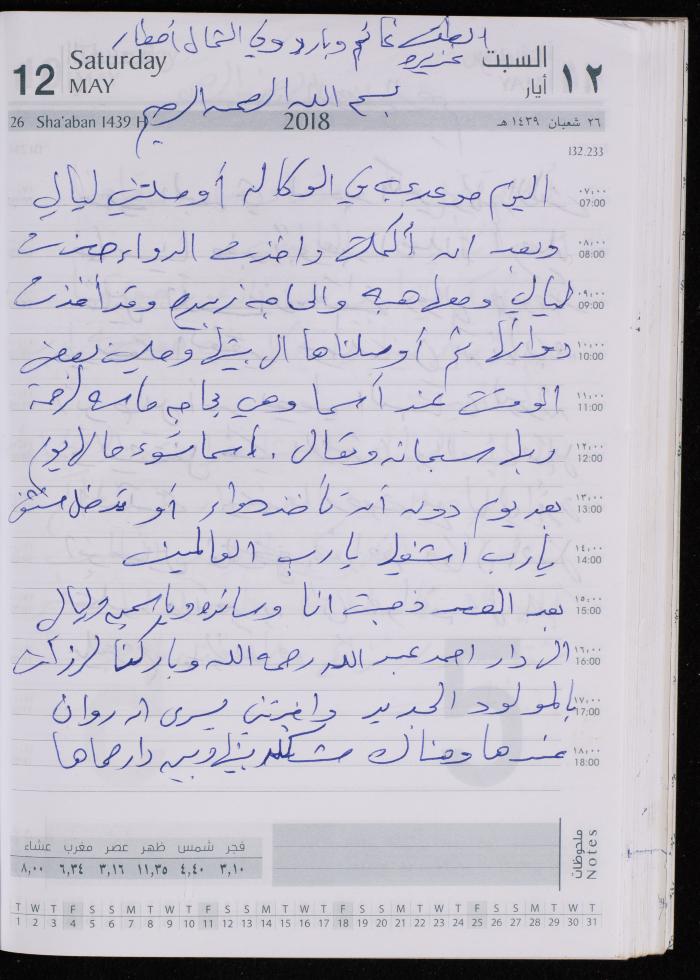 الطقس غائم وبارد وفي الشمال أمطار
غزيرة
12 Saturday MAY
السبت ١٢ أيار
بسم الله الرحمن الرحيم
26 Sha'aban 1439 H 2018 ٢٦ شعبان ١٤٣٩ هـ
132.233
٠٧:٠٠ 07:00 اليوم موعدي في الوكالة أوصلتني ليالي
٠٨:٠٠ 08:00 وبعد ان أكملت واخذت الدواء حضرت
٠٩:٠٠ 09:00 ليالي ومعها هبه والحاجه زبيده وقد أخذت
١٠:٠٠ 10:00 دوائها ثم أوصلناها الى بيتها وجلست بعض
١١:٠٠ 11:00 الوقت عند أسما وهي بحاجه ماسه لرحمة
١٢:٠٠ 12:00 ربها سبحانه وتعالى. أسما تسوء حالها يوم
١٣:٠٠ 13:00 بعد يوم دون أن تأخذ دواء أو تدخل مستشفى
١٤:٠٠ 14:00 يارب اشفيها يارب العالمين
١٥:٠٠ 15:00 بعد العصر ذهبت انا وسائده وياسمين وليالي
١٦:٠٠ 16:00 الى دار احمد عبد الله رحمه الله وباركنا لرزان
١٧:٠٠ 17:00 بالمولود الجديد واخبرتني يسرى ان روان
١٨:٠٠ 18:00 عندها وهناك مشكله بينها وبين دار حماها
ملحوظات Notes
فجر شمس ظهر عصر مغرب عشاء
٣,١٠ ٤,٤٠ ١١,٣٥ ٣,١٦ ٦,٣٤ ٨,٠٠
T W T F S S M T W T F S S M T W T F S S M T W T F S S M T W T
1 2 3 4 5 6 7 8 9 10 11 12 13 14 15 16 17 18 19 20 21 22 23 24 25 26 27 28 29 30 31